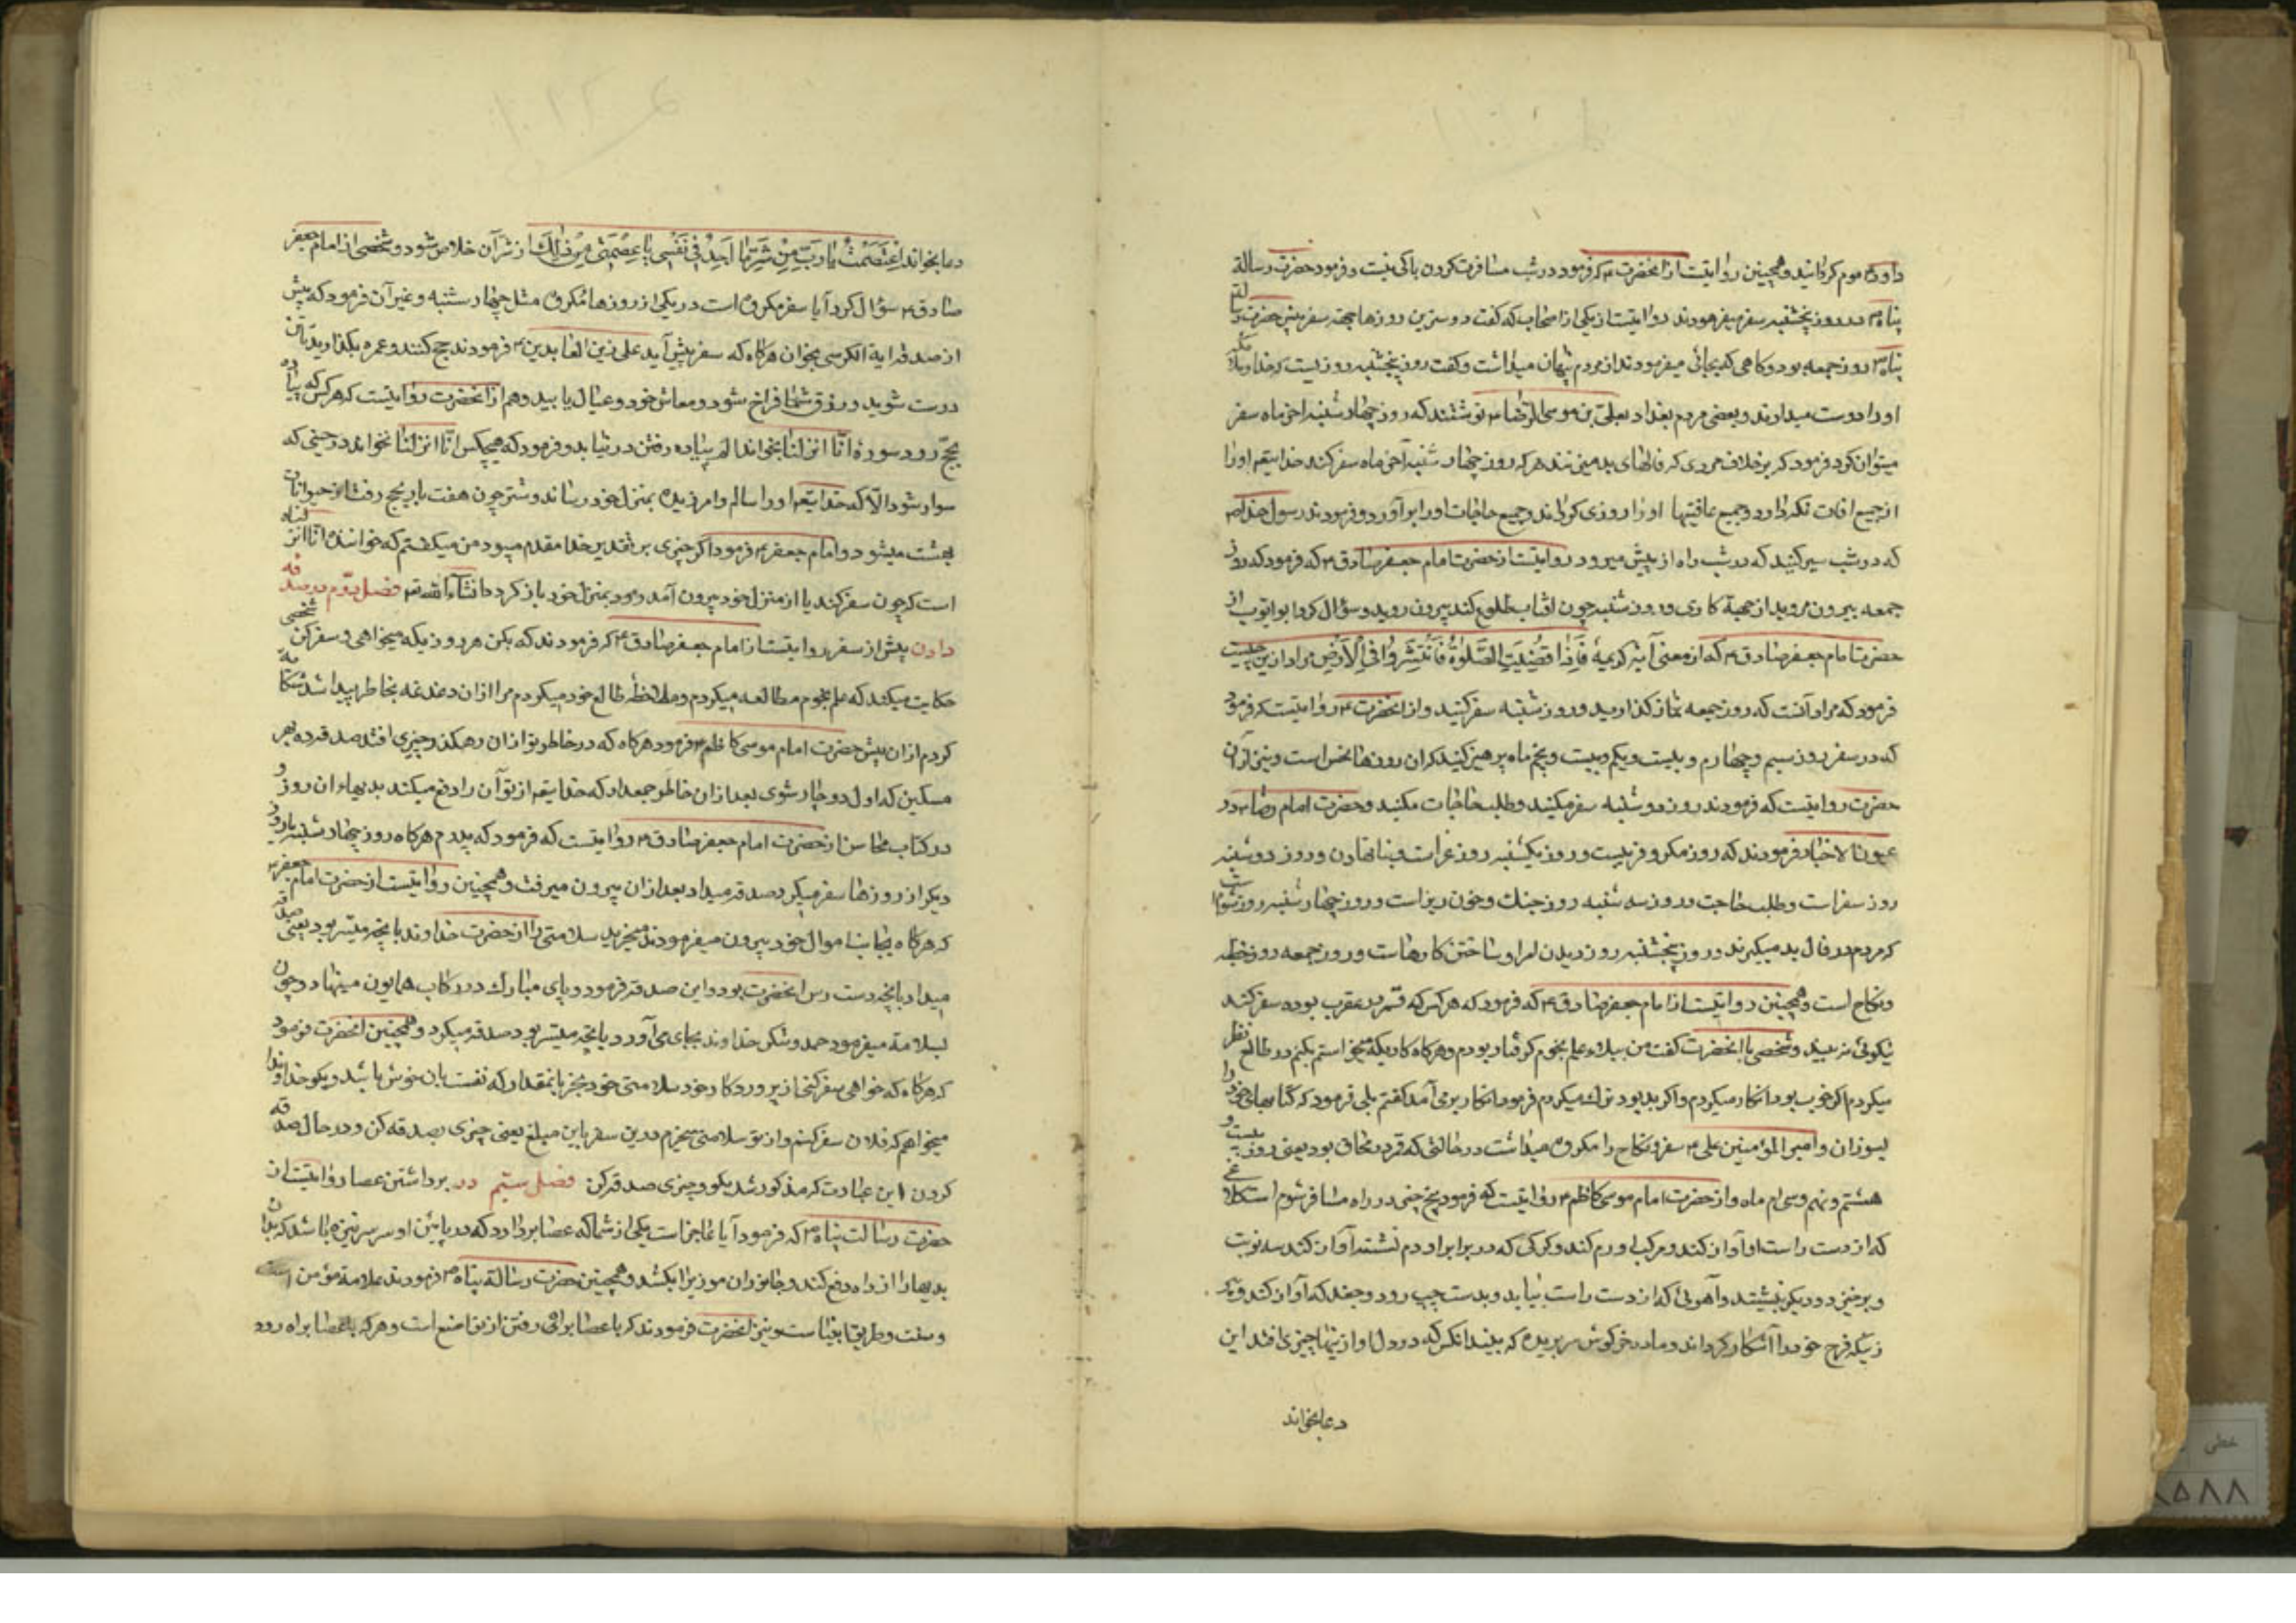 داود ع موم گردانید و همچنین روایتست از آنحضرت ع که فرمود در شب مسافرت کردن باکی نیست و فرمود حضرت رسالة
پناه ص در روز پنجشنبه سفر میفرمودند روایتست از یکی از اصحاب که گفت دوستترین روزها بجهة سفر پیش حضرت رسالت
پناه ص روز جمعه بود و کاهی که بجائی میفرمودند از مردم پنهان میداشت و گفت روز پنجشنبه روزیست که خدا و ملائکه
او را دوست میدارند و بعضی مردم بغداد بعلی بن موسی الرضا ع نوشتند که روز چهارشنبه آخر ماه سفر
میتوان کرد فرمود که برخلاف مردی که فالهای بد میزنند هر که روز چهارشنبه آخر ماه سفر کند خدایتعه او را
از جمیع افات نکه دارد و جمیع عاقبتها او را روزی کرداند و جمیع حاجات او را برآورد و فرمودند رسول خدا ص
که در شب سیر کنید که در شب راه از پیش میرود روایتست از حضرت امام جعفر صادق ع که فرمود که روز
جمعه بیرون مروید از جهة کاری و روز شنبه چون افتاب طلوع کند بیرون روید و سؤال کرد ابو ایوب از
حضرت امام جعفر صادق ع که از معنی آیه کریمهٔ فَاِذَا قُضِیَتِ الصَّلوٰةُ فَانْتَشِرُوا فِی الْاَرْضِ مراد ازین چیست
فرمود که مراد آنست که روز جمعه نماز کذارید و روز شنبه سفر کنید و از آنحضرت ع روایتست که فرمود
که در سفر روز سیم و چهارم و بیست و یکم و بیست و پنجم ماه پرهیز کنید که ان روزها نحس است و نیز از آن
حضرت روایتست که فرمودند روز دوشنبه سفر مکنید و طلب حاجات مکنید و حضرت امام رضا ع در
عیون الاخبار فرمودند که روز مکر و فریبست و روز یکشنبه روز غرات و بنا نهادن و روز دوشنبه
روز سفر است و طلب حاجت و روز سه شنبه روز جنك و خون ریز است و روز چهارشنبه روز شوم است
که مردم در فال بد میکیرند و روز پنجشنبه روز دیدن امرا و ساختن کارهاست و روز جمعه روز خطبه
و نکاح است و همچنین روایتست از امام جعفر صادق ع که فرمود که هر کس که قمر در عقرب بوده سفر کند
نیکوئی نه بیند و شخصی با آنحضرت گفت من ببلاء علم نجوم گرفتار بودم و هر کاه کاریکه میخواستم بکنم در طالع نظر
میکردم اکر خوب بود انکار میکردم و اکر بد بود ترك میکردم فرمود انکار برمی آمد کفتم بلی فرمود که کتابهای خود را
بسوزان و امیر المؤمنین علی ع سفر و نکاح را مکروه میداشت در حالتی که قمر در محاق بود یعنی روز بیست و
هشتم و نهم و سی ام ماه و از حضرت امام موسی کاظم ع روایتست که فرمود پنج چیز در راه مسافر شوم است کلاغی
که از دست راست او آواز کند و مرکب او رم کند و کرکی که در برابر او دم نشسته آواز کند سه نوبت
و برخیزد و دیکر بنشیند و آهوئی که از دست راست بیاید و بدست چپ رود و جغد که آواز کند و پیر
زنیکه فرج خود را آشکار کرداند و ماده خر کوش بریده که بیند انکس که در دل او از ینها چیزی افتد این
دعا بخواند
دعا بخواند اِعْتَصَمْتُ یٰا رَبِّ مِنْ شَرِّ مٰا اَجِدُ فِی نَفْسِی یٰا عِصْمَتِی مِنْ ذٰلِكَ از شر آن خلاص شود و شخصی از امام جعفر
صادق ع سؤال کرد آیا سفر مکروه است در یکی از روزهاء مکروه مثل چهارشنبه و غیر آن فرمود که پیش
از صدقه ایة الکرسی بخوان هرکاه که سفر پیش آید علی زین العابدین ع فرمودند حج کنند و عمره بکذارید تا تن
درست شوید و رزق شما فراخ شود و معاش خود و عیال یابید و هم از آنحضرت روایتست که هر کس که پیاده
بحج رود سورهٔ انّا انزلنا بخواند الم پیاده رفتن در نیابد و فرمود که هیچکس انّا انزلنا نخواند در حینی که
سوار شود الّا که خدایتعه او را سالم و امرزیده بمنزل خود رساند و شتر چون هفت بار بحج رفت از حیوانات
بهشت میشود و امام جعفر ع فرمود اگر چیزی بر تقدیر خدا مقدم میبود من میکفتم که خوانندهٔ انّا انزلناه
است که چون سفر کند یا از منزل خود بیرون آمده بود بمنزل خود باز کردد انشاء الله تعه فصل دوّم در صدقه
دادن پیش از سفر روایتست از امام جعفر صادق ع که فرمودند که بکن هر روزیکه میخواهی و سفر کن شخصی
حکایت میکند که علم نجوم مطالعه میکردم و ملاحظه طالع خود میکردم مرا ازان دغدغه بخاطر پیدا شد شکایة
کردم ازان پیش حضرت امام موسی کاظم ع فرمود هرکاه که در خاطر تو ازان رهکذر چیزی افتد صدقه ده بهر
مسکین که اول دو چار شوی بعد ازان خاطر جمعدار که خدایتعه از تو آن را دفع میکند بدیهاء ان روز و
در کتاب محاسن از حضرت امام جعفر صادق ع روایتست که فرمود که پدرم هرکاه روز چهارشنبه یا روز
دیکر از روزها سفر میکرد صدقه میداد بعد ازان بیرون میرفت و همچنین روایتست از حضرت امام جعفر ع
که هرکاه بجانب اموال خود بیرون میفرمودند میخرید سلامتی را از حضرت خداوند بانچه میسر بود یعنی صدقه
میداد بانچه دست رس انحضرت بود و این صدقه فرمود و پای مبارك در رکاب همایون مینهاد و چون
بسلامة میفرمود حمد و شکر خداوند بجای می آورد بانچه میسر بود صدقه میکرد و همچنین انحضرت فرمود
که هرکاه که خواهی سفر کنی از پروردکار خود سلامتی خود بخر بانمقدار که نفست بان خوش باشد و بکو خداوندا
میخواهم که فلان سفر کنم و از تو سلامتی میخرم درین سفر باین مبلغ یعنی چیزی بصدقه کن و در حال صدقه
کردن این عبارت که مذکور شد بکو و چیزی صدقه کن فصل سیم در برداشتن عصا روایتست از
حضرت رسالت پناه ص که فرمود آیا عاجز است یکی از شماکه عصا بردارد که در پایین او سر سرنیزه باشد که بدان
بدیها را از راه دفع کند و جانوران موذی را بکشد و همچنین حضرت رسالة پناه ص فرمودند علامة مؤمن است
و سنت و طریق انبیاست و نیز آنحضرت فرمودند که با عصا براهی رفتن از تواضع است و هرکه با عصا براه رود
خطی